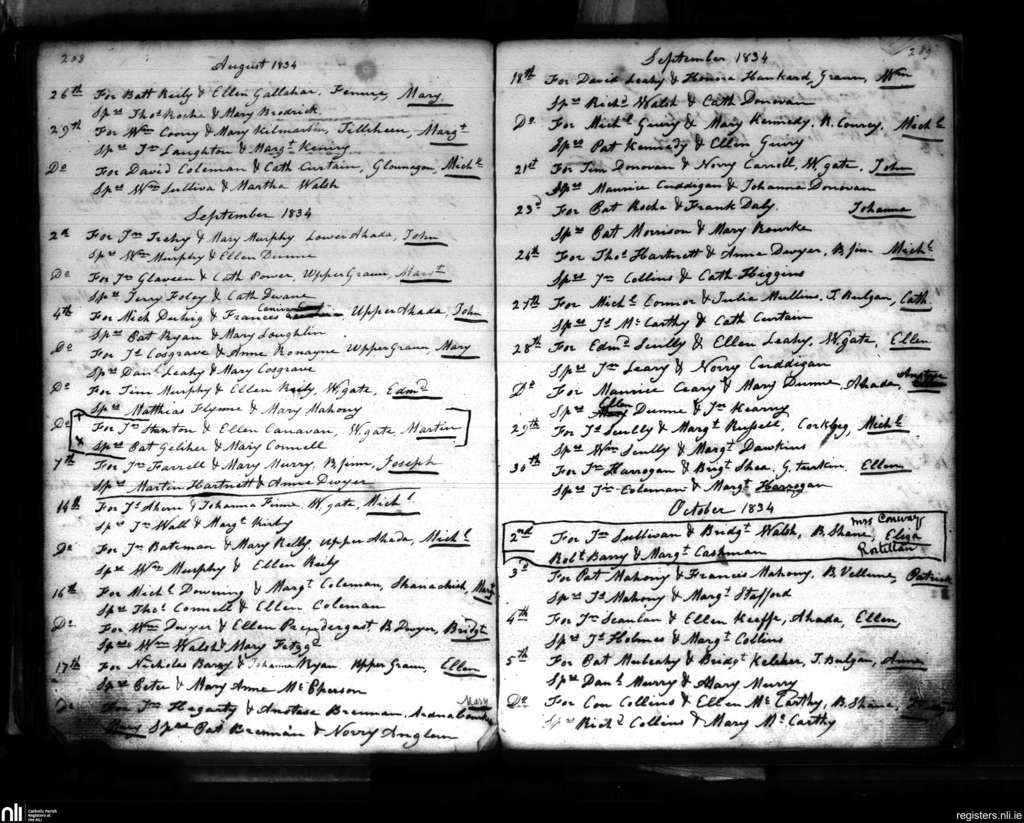 208
August 1834
26th For Batt Reily & Ellen Gallahar, Mary
Sprs Thos Roche & Mary Brodrick
29th For Wm Coory & Mary Kilmartin, Margt
Sprs Jn Laughton & Margt Keniry
Do For David Coleman & Cath Curtain, Glounagan, Michl
Sprs Wm Sulliva & Martha Walsh
September 1834
2d For Jn & Mary Murphy Lower Ahada, John
Sprs Wm Murphy & Ellen Dunne
Do For Jn Glaveen & Cath Power, Upper Graun, Margt
Sprs Terry Foley & Cath Dwane
4th For Mich Duhig & Frances Upper Ahada, John
Sprs Pat Ryan & Mary Loughlin
Do For Js Cosgrave & Anne Ronayne Upper Graun, Mary
Sprs Danl Leahy & Mary Cosgrave
Do For Tim Murphy & Ellen Reily, W.gate, Edmd
Sprs Matthias Flynne & Mary Mahony
Do For Js Stanton & Ellen Canavan, W.gate, Martin
Sprs Pat Geliher & Mary Connell
7th For Jn Farrell & Mary Murry, B.finn, Joseph
Sprs Martin Hartnett & Anne Dwyer
14th For Js Ahern & Johanna Finne, W.gate, Michl
Sprs Jn Wall & Margt Kirby
Do For Jn Bateman & Mary Kelly, Upper Ahada, Michl
Sprs Wm Murphy & Ellen Reily
16th For Michl Downing & Margt Coleman, Shanachish, Margt
Sprs Thos Connell & Ellen Coleman
Do For Wm Dwyer & Ellen Prendergast B.Dwyer, Bridgt
Sprs Wm Walsh & Mary Fitzgd
17th For Nicholas Barry & Johanna Ryan, Upper Graun, Ellen
Sprs Peter & Mary Anne McPherson
Mary
Do For Jn Hagarty & Anstase Brennan,
Sprs Pat Brennan & Norry Anglem
209
September 1834
18th For David Leahy & Honora Hankard, Graun, Wm
Sprs Richd Walsh & Cath Donovan
Do For Michl Geiry & Mary Kennedy, R. Conrey, Michl
Sprs Pat Kennedy & Ellen Geiry
21st For Tim Donovan & Norry Carroll, W.gate, John
Sprs Maurice Cuddigan & Johanna Donovan
23d For Pat Roche & Frank Daly, Johanna
Sprs Pat Morrison & Mary Rourke
24th For Thos Hartnett & Anne Dwyer, B.finn Michl
Sprs Jn Collins & Cath Higgins
27th For Michl Connor & Julia Mullins, T. Bulgan, Cath.
Sprs Js McCarthy & Cath Curtain
28th For Edmd Scully & Ellen Leahy, W.gate, Ellen
Sprs Jn Leary & Norry Cuddigan
Do For Maurice Ceary & Mary Dunne, Ahada, Anstase
Sprs Ellen Dunne & Jn Kearny
29th For Js Scully & Margt Russell, Corkbeg, Michl
Sprs Wm Scully & Margt Dawkins
30th For Jn Harrogan & Brigt Shea, G.turkin, Ellen
Sprs Jn Coleman & Margt Harrogan
October 1834
2nd For Jn Sullivan & Bridgt Walsh, B.Shane, Eliza
Mrs Conway
Robt Barry & Margt Cashman Rostellan
3d For Pat Mahony & Frances Mahony, B.Vellune, Patrick
Sprs Js Mahony & Margt Stafford
4th For Jn Scanlan & Ellen Keeffe, Ahada, Ellen
Sprs Js Holmes & Margt Collins
5th For Pat Mulcahy & Bridgt Keliher, T. Bulgan, Anne
Sprs Danl Murry & Mary Murry
Do For Con Collins & Ellen McCarthy, B.Shane,
Sprs Richd Collins & Mary McCarthy
nli Catholic Parish Registers at the NLI
registers.nli.ie